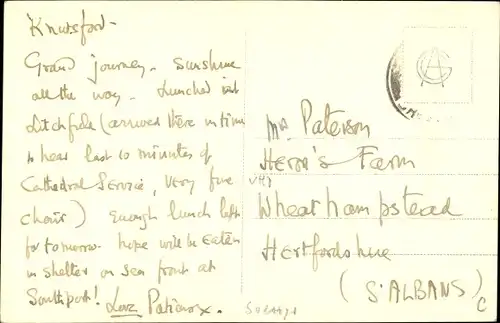 Knutsford-
Grand journey - sunshine
all the way - Lunched in
Litchfield (arrived there in time
to hear last 10 minutes of
Cathedral Service, very fine
choir) enough lunch left
for tomorrow - hope will be eaten
in shelter on sea front at
Southport! Love
Mrs Paterson
Heron's Farm
Wheathampstead
Hertfordshire
(S. ALBANS)